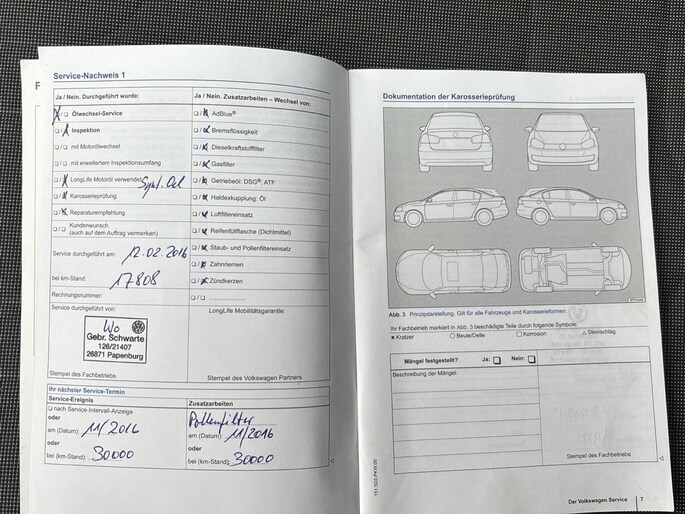 F
Service-Nachweis 1
Ja / Nein. Durchgeführt wurde:
Ölwechsel-Service
Inspektion
mit Motorölwechsel
mit erweitertem Inspektionsumfang
LongLife Motoröl verwendet Synt. Oel
Karosserieprüfung
Reparaturempfehlung
Kundenwunsch
(auch auf dem Auftrag vermerken)
Service durchgeführt am: 12.02.2016
bei km-Stand: 17808
Rechnungsnummer:
Service durchgeführt von:
Wo
Gebr. Schwarte
126/21407
26871 Papenburg
Stempel des Fachbetriebs
Ja / Nein. Zusatzarbeiten – Wechsel von:
AdBlue®
Bremsflüssigkeit
Dieselkraftstofffilter
Gasfilter
Getriebeöl: DSG®, ATF
Haldexkupplung: Öl
Luftfiltereinsatz
Reifenfüllflasche (Dichtmittel)
Staub- und Pollenfiltereinsatz
Zahnriemen
Zündkerzen
LongLife Mobilitätsgarantie:
Stempel des Volkswagen Partners
Ihr nächster Service-Termin
Service-Ereignis
nach Service-Intervall-Anzeige
oder
am (Datum): 11/2016
oder
bei (km-Stand): 30000
Zusatzarbeiten
Pollenfilter
am (Datum): 11/2016
oder
bei (km-Stand): 30000
Dokumentation der Karosserieprüfung
Abb. 3 Prinzipdarstellung. Gilt für alle Fahrzeuge und Karosserieformen.
Ihr Fachbetrieb markiert in Abb. 3 beschädigte Teile durch folgende Symbole:
× Kratzer ○ Beule/Delle □ Korrosion △ Steinschlag
Mängel festgestellt? Ja: Nein:
Beschreibung der Mängel:
Stempel des Fachbetriebs
Der Volkswagen Service 7